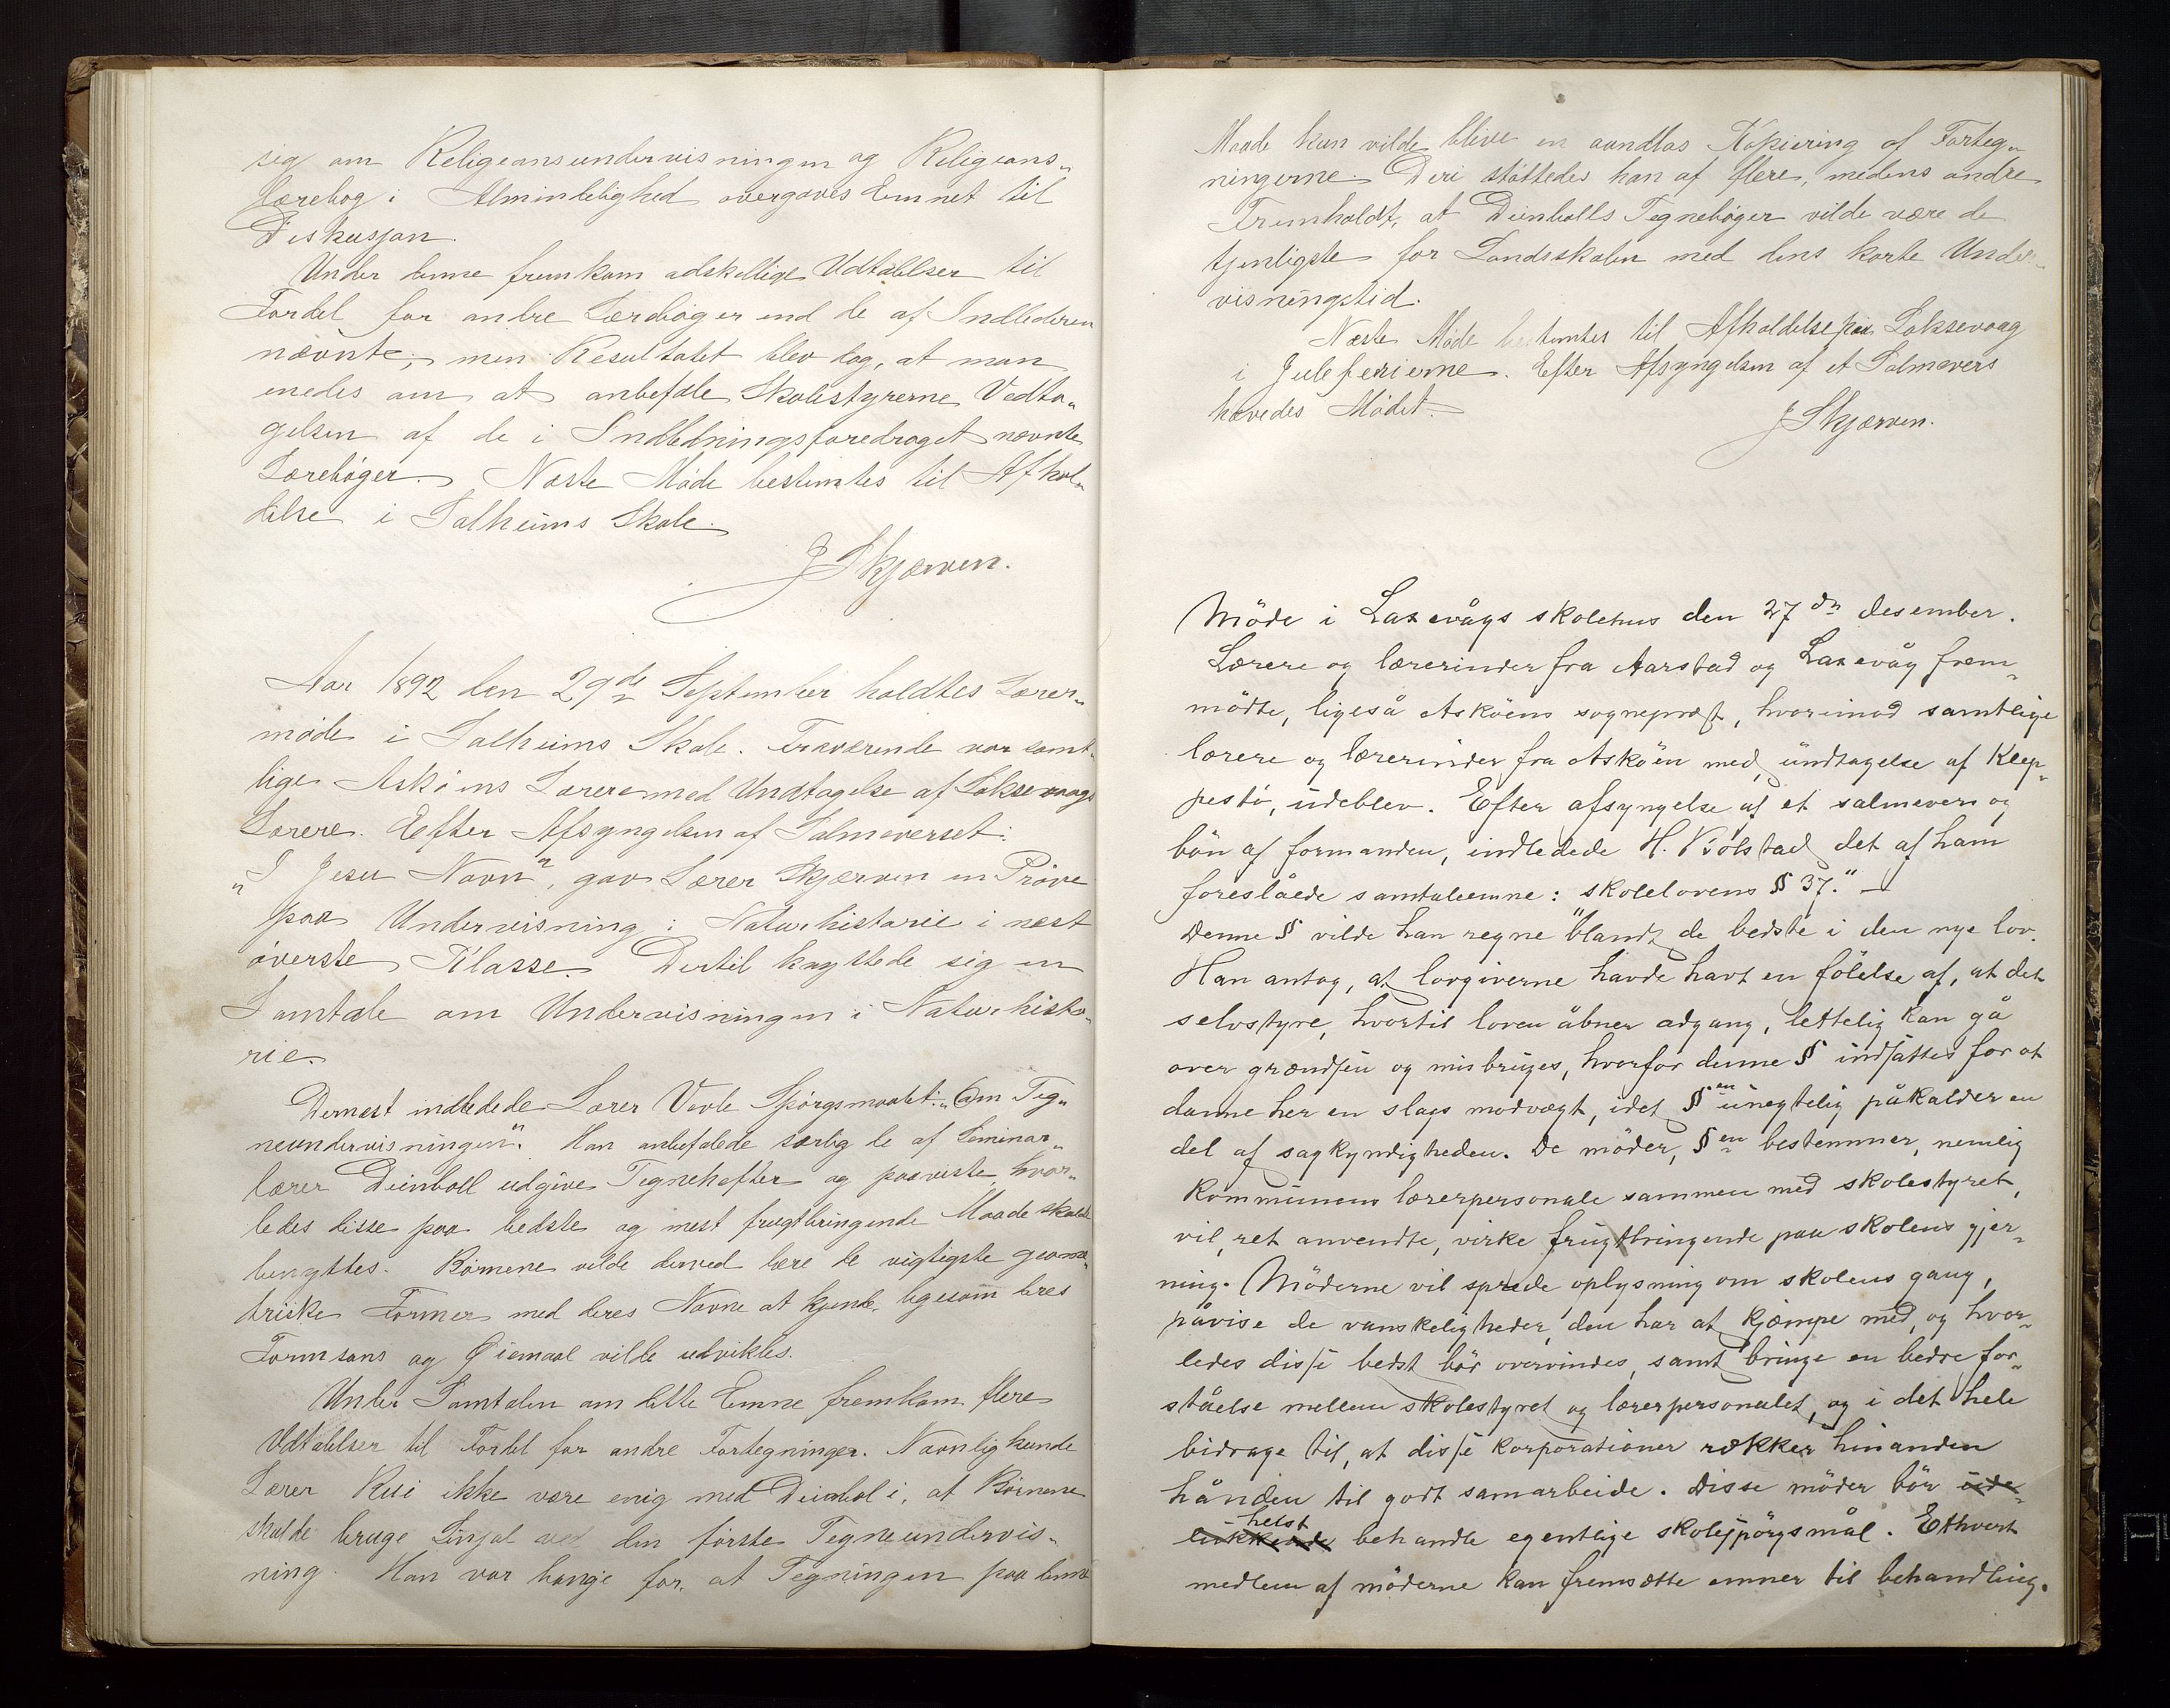 sig om Religionsundervisningen og Religions-
lærebog i Almindelighed overgaves Emnet til
Diskusjon.
Under denne fremkom adskellige Udtalelser til
Fordel for andre Lærebøger end de af Indlederen
nævnte; men Resultatet blev dog, at man
enedes om at anbefale Skolestyrerne Vedta-
gelsen af de i Indledningsforedraget nævnte
Lærebøger. Næste Møde bestemtes til Afhol-
delse i Salheims Skole.
J Skjærven.
Aar 1892 den 29de September holdtes Lærer-
møde i Salheims Skole. Fraværende var samt-
lige Askøens Lærere med Undtagelse af Laksevaags
Lærere. Efter Afsyngelsen af Salmeverset:
"I Jesu Navn", gav Lærer Skjærven en Prøve
paa Undervisning i Naturhistorie i næst
øverste Klasse. Dertil knyttede sig en
Samtale om Undervisningen i Naturhisto-
rie.
Dernæst indledede Lærer Vevle Spørgsmaalet: "Om Teg-
neundervisningen". Han anbefalede særlig de af Seminar-
lærer Deinboll udgivne Tegnehefter og paaviste, hvor-
ledes disse paa bedste og mest frugtbringende Maade skulde
benyttes. Børnene vilde derved lære de vigtigste geome-
triske Former med deres Navne at kjende, ligesom deres
Formsans og Øiemaal vilde udvikles.
Under Samtalen om dette Emne fremkom flere
Udtalelser til Fordel for andre Fortegninger. Navnlig kunde
Lærer Rui ikke være enig med Deinbol i, at Børnene
skulde bruge Linjal ved den første Tegneundervis-
ning. Han var bange for, at Tegningen paa denne
Maade kun vilde blive en aandløs Kopiering af Forteg-
ningerne. Deri støttedes han af flere, medens andre
Fremholdt, at Deinbolls Tegnebøger vilde være de
tjenligste for Landsskolen med dens korte Under-
visningstid.
Næste Møde bestemtes til Afholdelse paa Laksevaag
i Juleferierne. Efter Afsyngelsen af et Salmevers
hævedes Mødet.
J Skjærven.
Möde i Laxevågs skolehus den 27dn desember.
Lærere og lærerinder fra Aarstad og Laxevåg frem-
mödte, ligeså Asköens sogneprest, hvorimod samtlige
lærere og lærerinder fra Asköen med undtagelse af Klep-
pestö, udeblev. Efter afsyngelse af et salmevers og
bön af formanden, indledede H. Vollstad det af ham
foreslåede samtaleemne: skolelovens § 37." —
Denne § vilde han regne blandt de bedste i den nye lov.
Han antog, at lovgiverne havde havt en fölelse af, at det
selvstyre, hvortil loven åbner adgang, lettelig kan gå
over grændsen og misbruges, hvorfor denne § indsattes for at
danne her en slags modvægt, idet §en unegtelig påkalder en
del af sagkyndigheden. De möder, §en bestemmer, nemlig
kommunens lærerpersonale sammen med skolestyret,
vil, ret anvendte, virke frugtbringende paa skolens gjer-
ning. Möderne vil sprede oplysning om skolens gang,
påvise de vanskeligheder, den har at kjæmpe med, og hvor-
ledes disse bedst bör overvindes, samt bringe en bedre for-
ståelse mellem skolestyret og lærerpersonalet, og i det hele
bidrage til, at disse korporationer rækker hinanden
hånden til godt samarbeide. Disse möder bör ude-
lukkende helst behandle egentlige skolespörgsmål. Ethvert
medlem af möderne kan fremsætte emner til behandling.